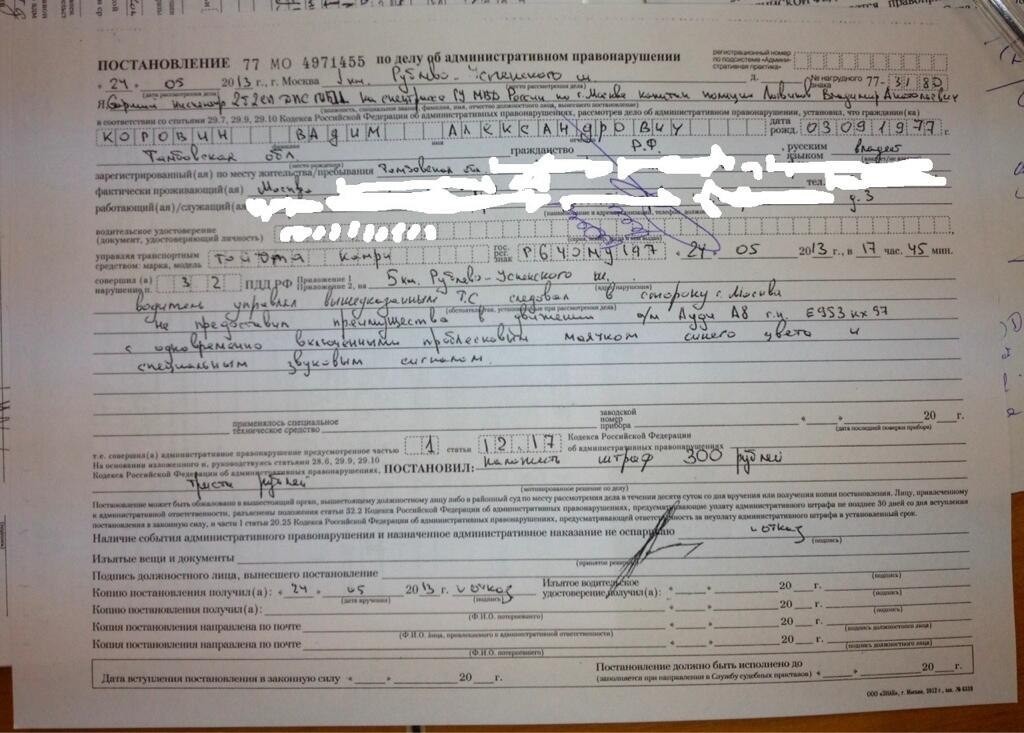 ПОСТАНОВЛЕНИЕ 77 МО 4971455 по делу об административном правонарушении
регистрационный номер по подсистеме «Административная практика»
« 24 » 05 2013 г., г. Москва 5 км. Рублево-Успенского ш. д. № нагрудного знака 77-3180
(дата рассмотрения дела)
Я Старший инспектор 2 б 2 сп ДПС ГИБДД на спецтрассе ГУ МВД России по г. Москва капитан полиции Владимир Анатольевич
(должность, специальное звание, фамилия, имя, отчество должностного лица, вынесшего постановление)
в соответствии со статьями 29.7, 29.9, 29.10 Кодекса Российской Федерации об административных правонарушениях, рассмотрев дело об административном правонарушении, установил, что гражданин(ка)
КОРОВИН ВАДИМ АЛЕКСАНДРОВИЧ дата рожд. 03091977 г.
фамилия имя отчество
Тамбовская обл гражданство Р.Ф. , русским языком владеет
(место рождения)
зарегистрированный(ая) по месту жительства/пребывания Тамбовская обл
фактически проживающий(ая) Москва тел.
работающий(ая)/служащий(ая) д. 3
(наименование и адрес организации, телефон, должность)
водительское удостоверение
(документ, удостоверяющий личность)
(серия, номер, когда и кем выдан)
управляя транспортным средством: марка, модель Тойота Камри гос. рег. знак Р640МУ197 « 24 » 05 2013 г., в 17 час. 45 мин.
совершил(а) нарушение п. 3 2 ПДД РФ Приложение 1 Приложение 2, на 5 км. Рублево-Успенского ш.
(адрес нарушения)
водитель управлял вышеуказанным Т.С следовал в сторону г. Москва
(обстоятельства, установленные при рассмотрении дела)
не предоставил преимущества в движении а/м Ауди А8 г.н. Е953кх97
с одновременно включенными проблесковым маячком синего цвета и
специальным звуковым сигналом.
применялось специальное техническое средство заводской номер прибора « » 20 г.
(дата последней поверки прибора)
т.е. совершил(а) административное правонарушение предусмотренное частью 1 статьи 12.17 Кодекса Российской Федерации об административных правонарушениях
На основании изложенного и, руководствуясь статьями 28.6, 29.9, 29.10 Кодекса Российской Федерации об административных правонарушениях, ПОСТАНОВИЛ: наложить штраф 300 рублей
триста рублей
(мотивированное решение по делу)
Постановление может быть обжаловано в вышестоящий орган, вышестоящему должностному лицу либо в районный суд по месту рассмотрения дела в течении десяти суток со дня вручения или получения копии постановления. Лицу, привлеченному
к административной ответственности, разъяснены положения статьи 32.2 Кодекса Российской Федерации об административных правонарушениях, предусматривающие уплату административного штрафа не позднее 30 дней со дня вступления
постановления в законную силу, и части 1 статьи 20.25 Кодекса Российской Федерации об административных правонарушениях, предусматривающей ответственность за неуплату административного штрафа в установленный срок.
Наличие события административного правонарушения и назначенное административное наказание не оспариваю отказ
(подпись)
Изъятые вещи и документы
(принятое решение)
Подпись должностного лица, вынесшего постановление
(подпись)
Копию постановления получил(а): « 24 » 05 2013 г. отказ Изъятое водительское удостоверение получил(а): « » 20 г.
(дата вручения) (подпись) (подпись)
Копию постановления получил(а): « » 20 г.
(Ф.И.О. потерпевшего) (подпись)
Копия постановления направлена по почте « » 20 г.
(Ф.И.О. лица, привлекаемого к административной ответственности) (подпись должностного лица)
Копия постановления направлена по почте « » 20 г.
(Ф.И.О. потерпевшего) (подпись должностного лица)
Дата вступления постановления в законную силу « » 20 г. Постановление должно быть исполнено до « » 20 г.
(заполняется при направлении в Службу судебных приставов)
ООО «ЗНАК», г. Москва, 2012 г., зак. № 6318